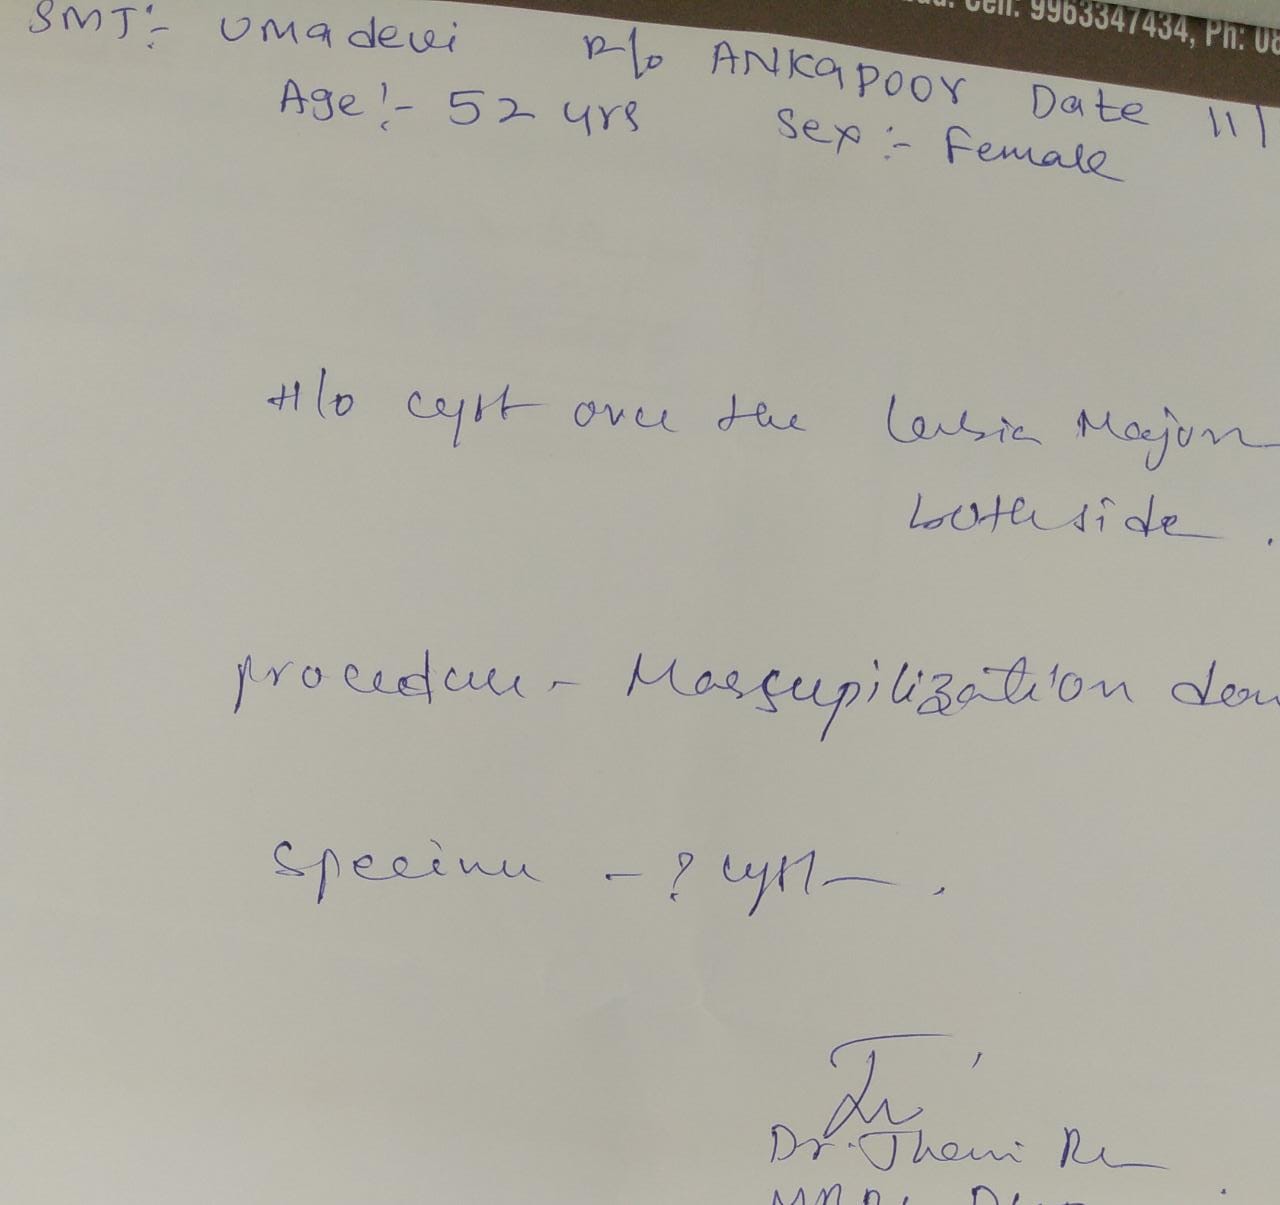 Cell: 9963347434, Ph: 08
SMT:- Umadevi R/o ANKAPOOR Date 11/
Age:- 52 yrs Sex:- Female
H/o cyst over the Labia Majora
both side.
procedure - Massupilization don
specimen - ? cyst.
Dr.